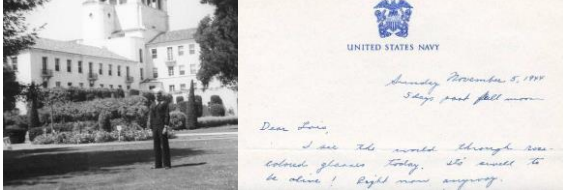 UNITED STATES NAVY
Sunday November 5, 1944
5 days past full moon
Dear Lois,
I see the world through rose-
colored glasses today. It's swell to
be alive! Right now anyway.